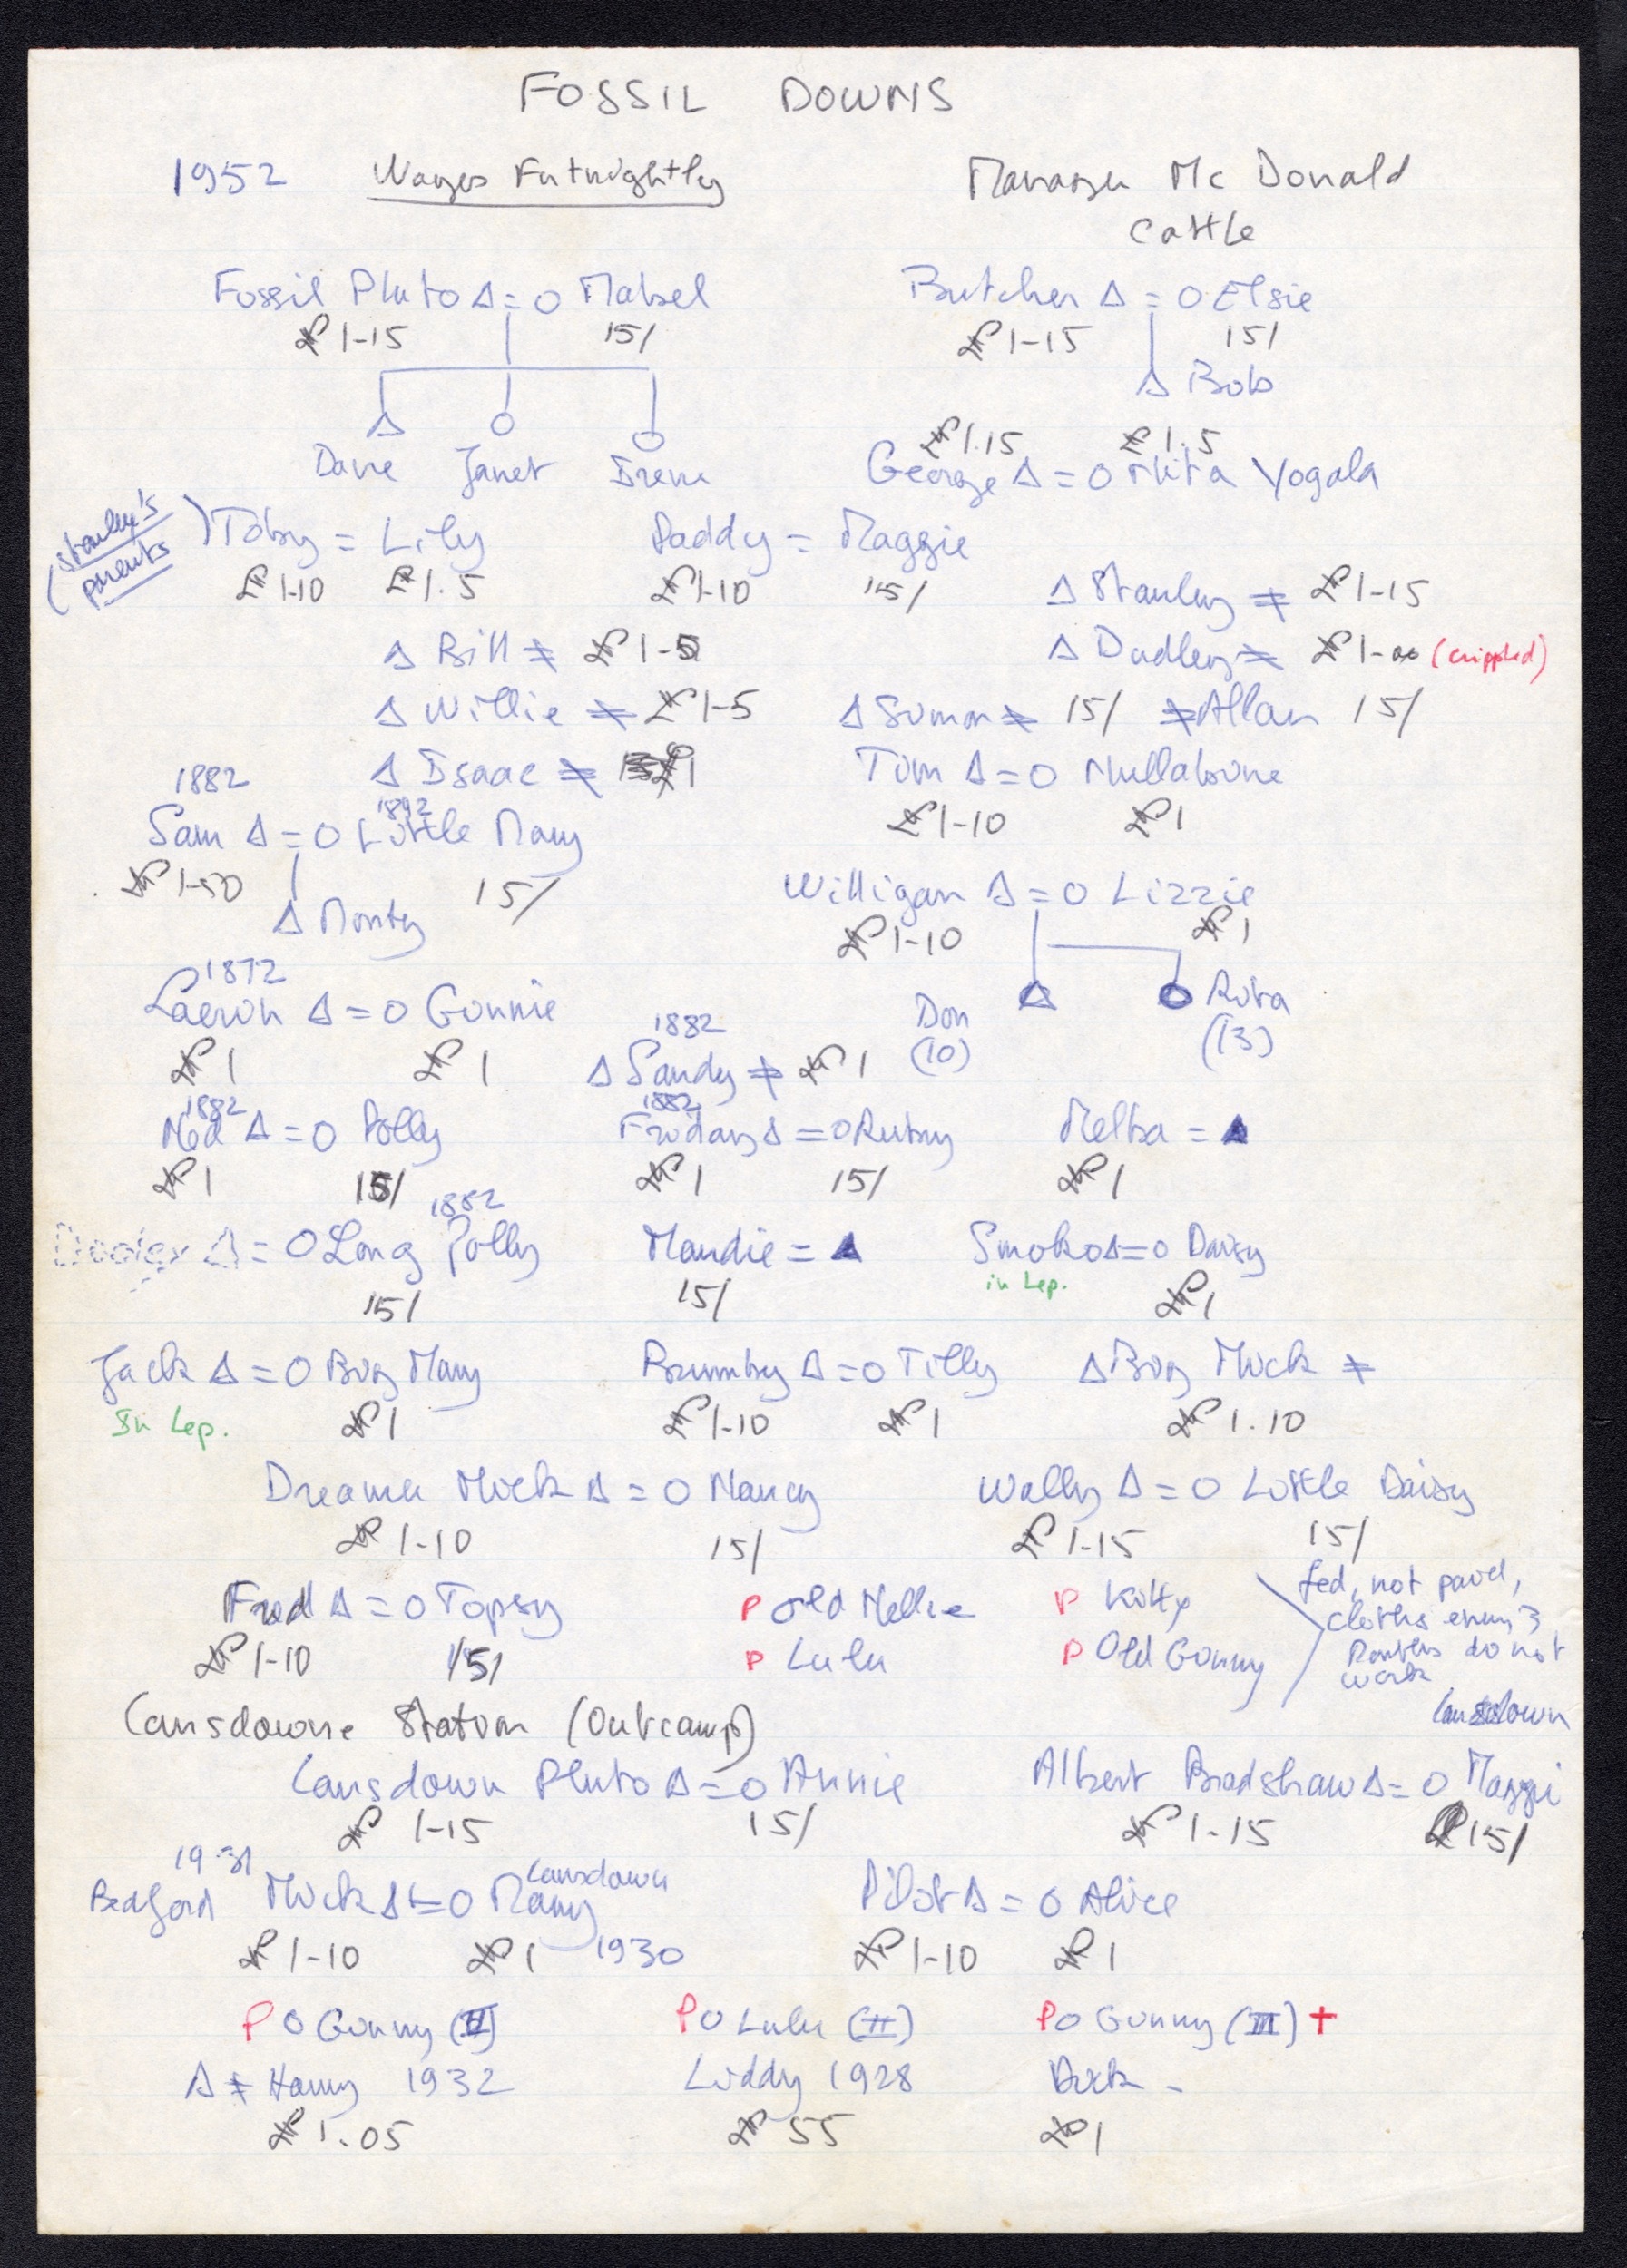 FOSSIL DOWNS
1952 Wages Fortnightly Manager Mc Donald
Cattle
Fossil Pluto Δ = O Mabel Butcher Δ = O Elsie
£1-15 15/ £1-15 15/
Δ Bob
£1.15 £1.5
Dave Janet Irene George Δ = O Nita Yogala
(Stanley's parents) Toby = Lily Paddy = Maggie
£1-10 £1.5 £1-10 15/ Δ Stanley ≠ £1-15
Δ Bill ≠ £1-5 Δ Dudley ≠ £1-00 (crippled)
Δ Willie ≠ £1-5 Δ Simon ≠ 15/ ≠ Allan 15/
Δ Isaac ≠ £1 Tom Δ = O Nullabone
1882 1892 £1-10 £1
Sam Δ = O Little Mary
£1-50 15/ Willigan Δ = O Lizzie
Δ Monty £1-10 £1
1872
Δ = O Gunnie Don (10) Rita (13)
£1 £1 1882
Δ Sandy ≠ £1
1882 1882
Ned Δ = O Polly Friday Δ = O Ruby Melba = ▲
£1 15/ £1 15/ £1
1882
Δ = O Long Polly Maudie = ▲ Smoko Δ = O Daisy
15/ 15/ in Lep. £1
Jack Δ = O Big Mary Brumby Δ = O Tilly Δ Big Mick ≠
In Lep. £1 £1-10 £1 £1.10
Dreamer Mick Δ = O Nancy Wally Δ = O Little Daisy
£1-10 15/ £1-15 15/
Fred Δ = O Topsy P Old Nellie P Kitty fed, not paid,
£1-10 15/ P Lulu P Old Gunny cloths every 3
Months do not
work
Lansdowne Station (Outcamp) Lansdown
Lansdown Pluto Δ = O Annie Albert Bradshaw Δ = O Maggie
£1-15 15/ £1-15 15/
1931 Lansdown
Bedford Mick Δ = O Mary Pilot Δ = O Alice
£1-10 £1 1930 £1-10 £1
P O Gunny (II) P O Lulu (II) P O Gunny (III) +
Δ ≠ Harry 1932 Liddy 1928 Dick -
£1.05 £55 £1